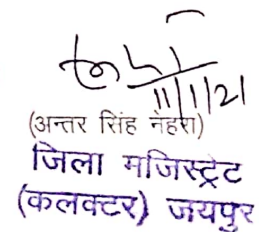 11/1/21
(अन्तर सिंह नेहरा)
जिला मजिस्ट्रेट
(कलक्टर) जयपुर